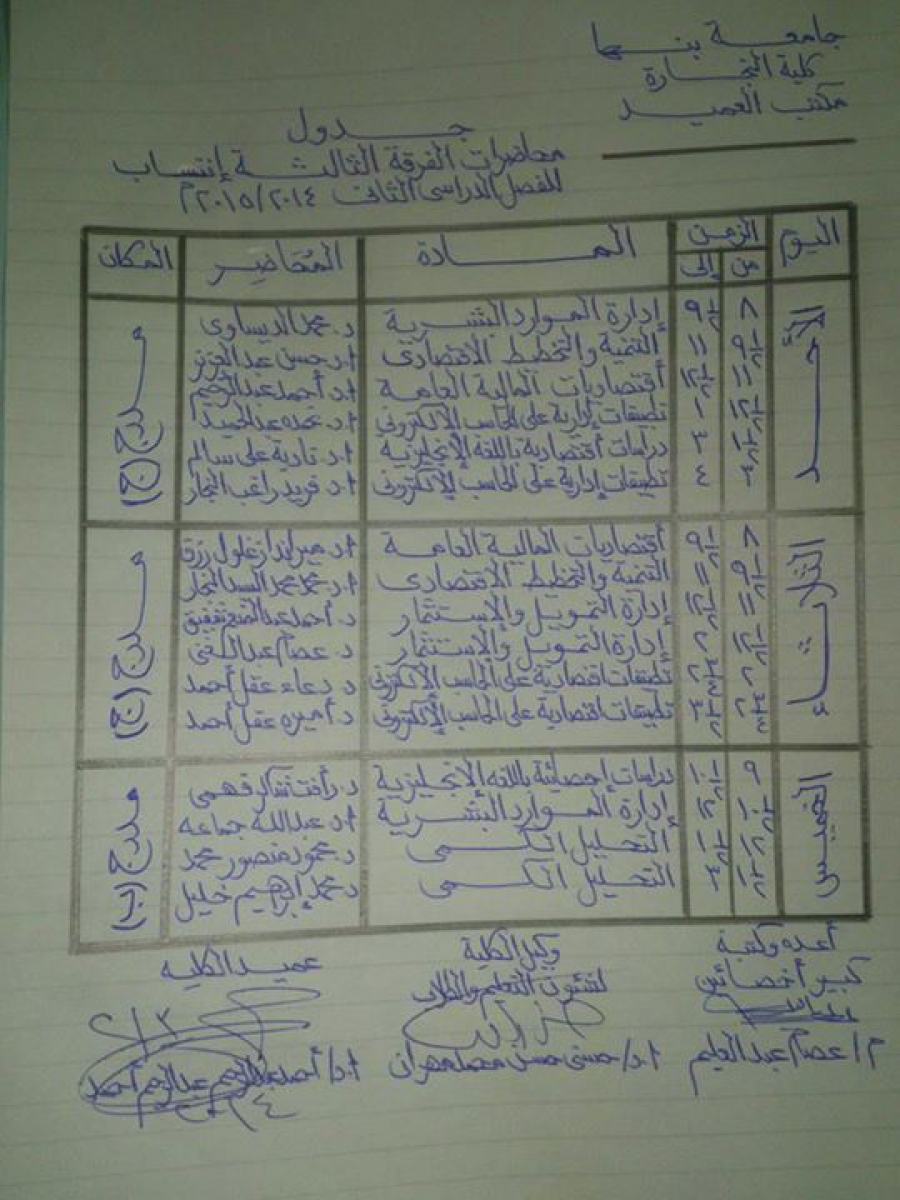 جامعة بنها
كلية التجارة
مكتب العميد
جدول
محاضرات الفرقة الثالثة إنتساب
للفصل الدراسى الثانى ٢٠١٥/٢٠١٤م
اليوم الزمن المادة المُحاضِر المكان
من إلى
الأحد مدرج (ج)
٨ ٩½ إدارة الموارد البشرية د. محمد الديساوى
٩½ ١١ التنمية والتخطيط الاقتصادى أ.د. حسن عبد العزيز
١١ ١٢½ أقتصاديات المالية العامة أ.د. أحمد عبد الرحيم
١٢½ ١ تطبيقات إدارية على الحاسب الإلكترونى أ.د. عبد الحميد
١½ ٣ دراسات أقتصادية باللغة الإنجليزية أ.د. نادية على سالم
٣ ٤ تطبيقات إدارية على الحاسب الإلكترونى أ.د. فريد راغب النجار
الثلاثاء مدرج (ج)
٨ ٩½ أقتصاديات المالية العامة أ.د. ميراندا زغلول رزق
٩½ ١١ التنمية والتخطيط الاقتصادى أ.د. محمد محمد السيد النجار
١١ ١٢½ إدارة التمويل والإستثمار د. أحمد عبد المنعم شفيق
١٢½ ٢ إدارة التمويل والإستثمار د. عصام عبد الغنى
٢ ٢¾ تطبيقات اقتصادية على الحاسب الإلكترونى د. دعاء عقل أحمد
٢¾ ٣½ تطبيقات اقتصادية على الحاسب الإلكترونى د. أميره عقل أحمد
الخميس مدرج (ب)
٩ ١٠½ دراسات إحصائية باللغة الإنجليزية د. رأفت شاكر فهمى
١٠½ ١٢ إدارة الموارد البشرية أ.د. عبد الله جماعه
١٢ ١½ التحليل الكمى د. محمود منصور محمد
١½ ٣ التحليل الكمى د. محمد إبراهيم خليل
أعده وكتبة وكيل الكلية عميد الكلية
كبير أخصائين لشئون التعليم والطلاب
م/ عصام عبد العليم أ.د/ حسنى حسن محمد مهران أ.د/ أحمد عبد الرحيم أحمد